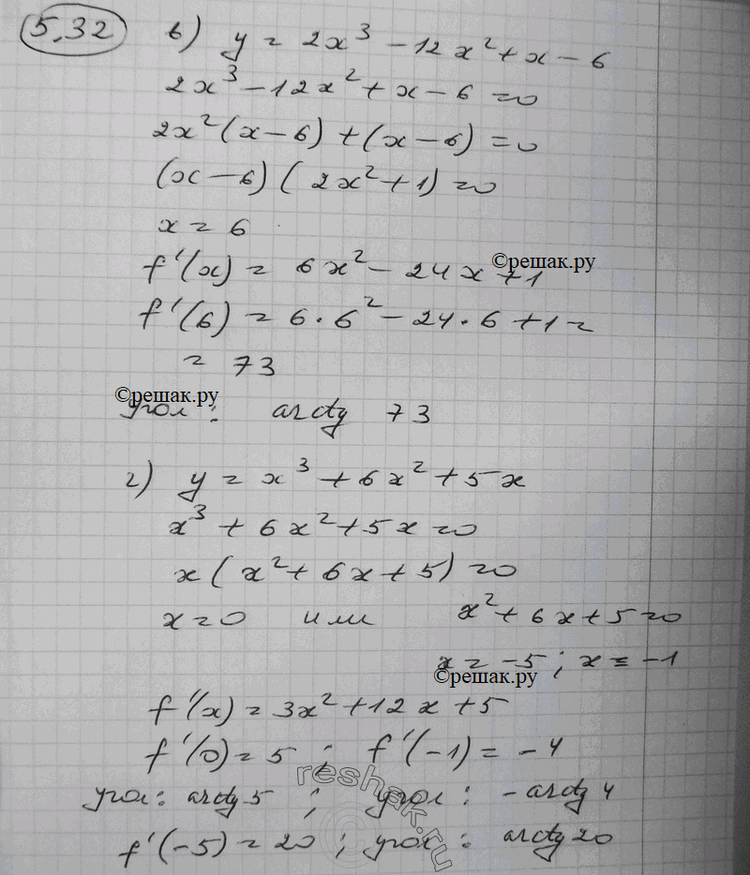 5.32 в) y = 2x³ - 12x² + x - 6
2x³ - 12x² + x - 6 = 0
2x²(x - 6) + (x - 6) = 0
(x - 6)(2x² + 1) = 0
x = 6
©решак.ру
f'(x) = 6x² - 24x + 1
f'(6) = 6 · 6² - 24 · 6 + 1 =
= 73
©решак.ру
угол: arctg 73
г) y = x³ + 6x² + 5x
x³ + 6x² + 5x = 0
x(x² + 6x + 5) = 0
x = 0 или x² + 6x + 5 = 0
x = -5; x = -1
©решак.ру
f'(x) = 3x² + 12x + 5
f'(0) = 5; f'(-1) = -4
reshak.ru
угол: arctg 5; угол: -arctg 4
f'(-5) = 20; угол: arctg 20